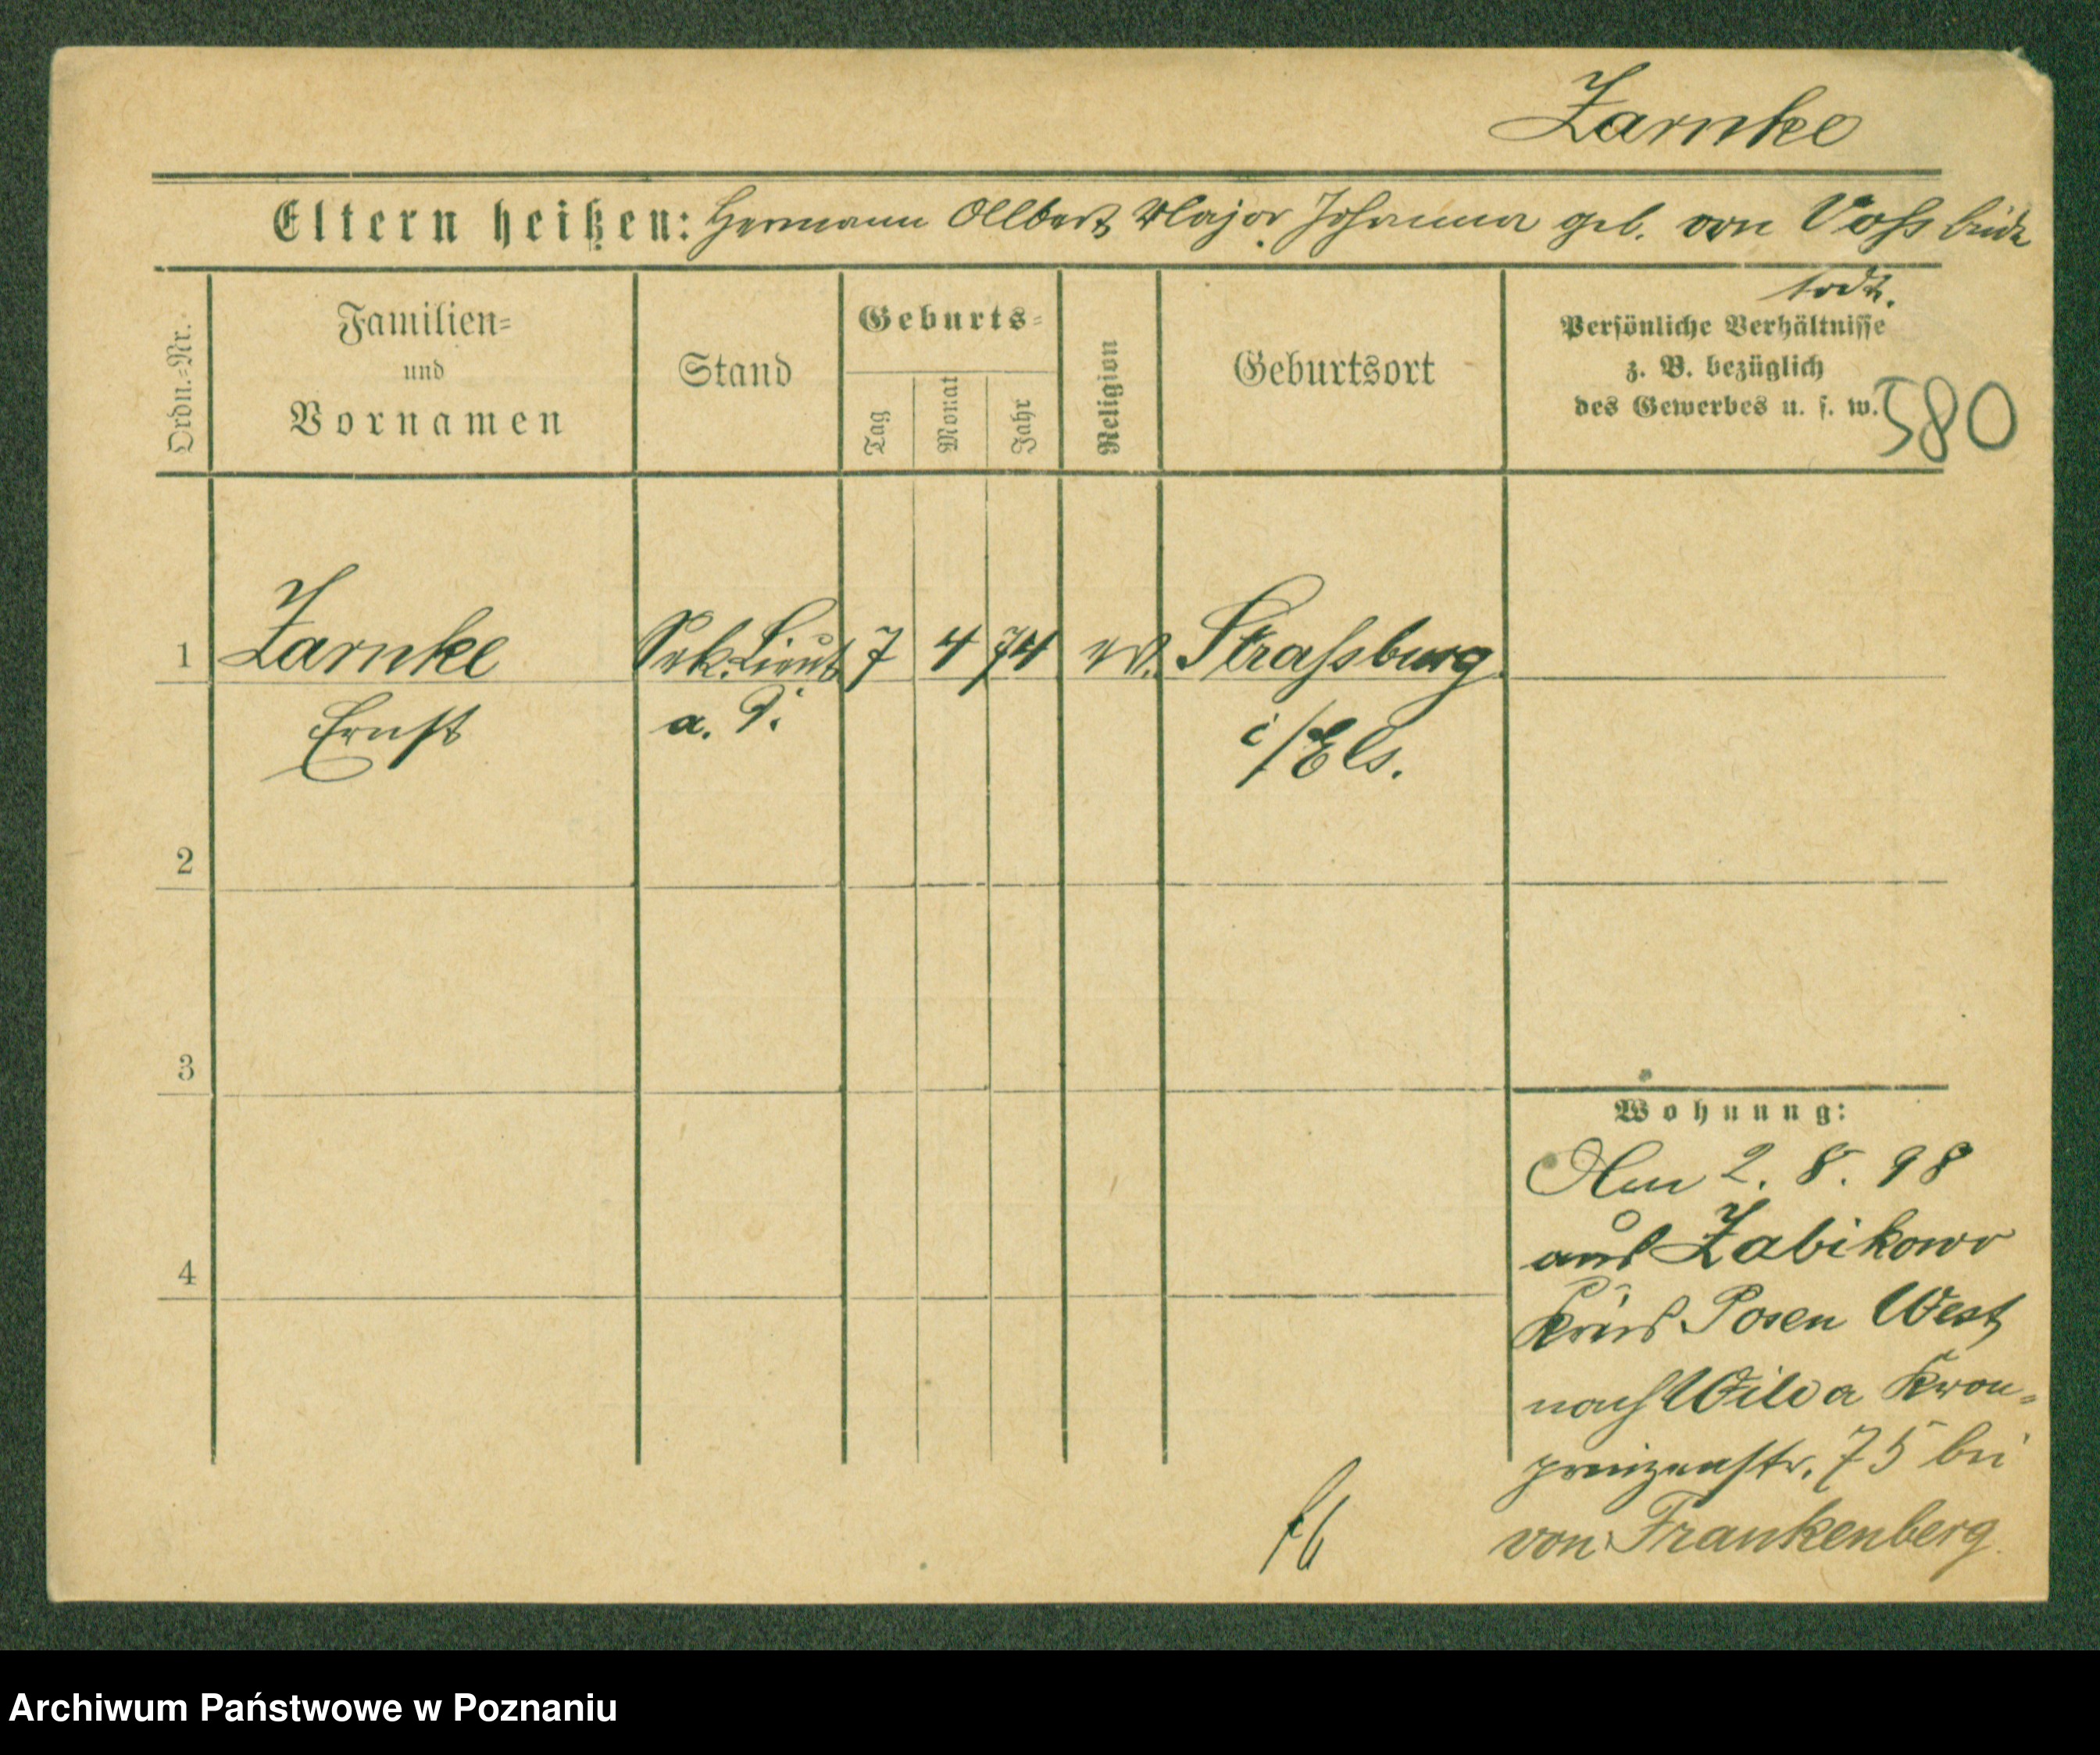 Zarnke
Eltern heißen: Hermann Albert Major Johanna geb. von Voß beide
todt.
Ordn.-Nr.
Familien-
und
Vornamen
Stand
Geburts-
Tag
Monat
Jahr
Religion
Geburtsort
Persönliche Verhältnisse
z. B. bezüglich
des Gewerbes u. s. w.
580
1 Zarnke Sek. Lieut 7 4 74 ev. Straßburg
Ernst a. D. i/Els.
2
3
4
Wohnung:
Am 2. 8. 98
aus Zabikowo
Kreis Posen West
nach Wilda Kron-
prinzenstr. 75 bei
von Frankenberg.
Archiwum Państwowe w Poznaniu